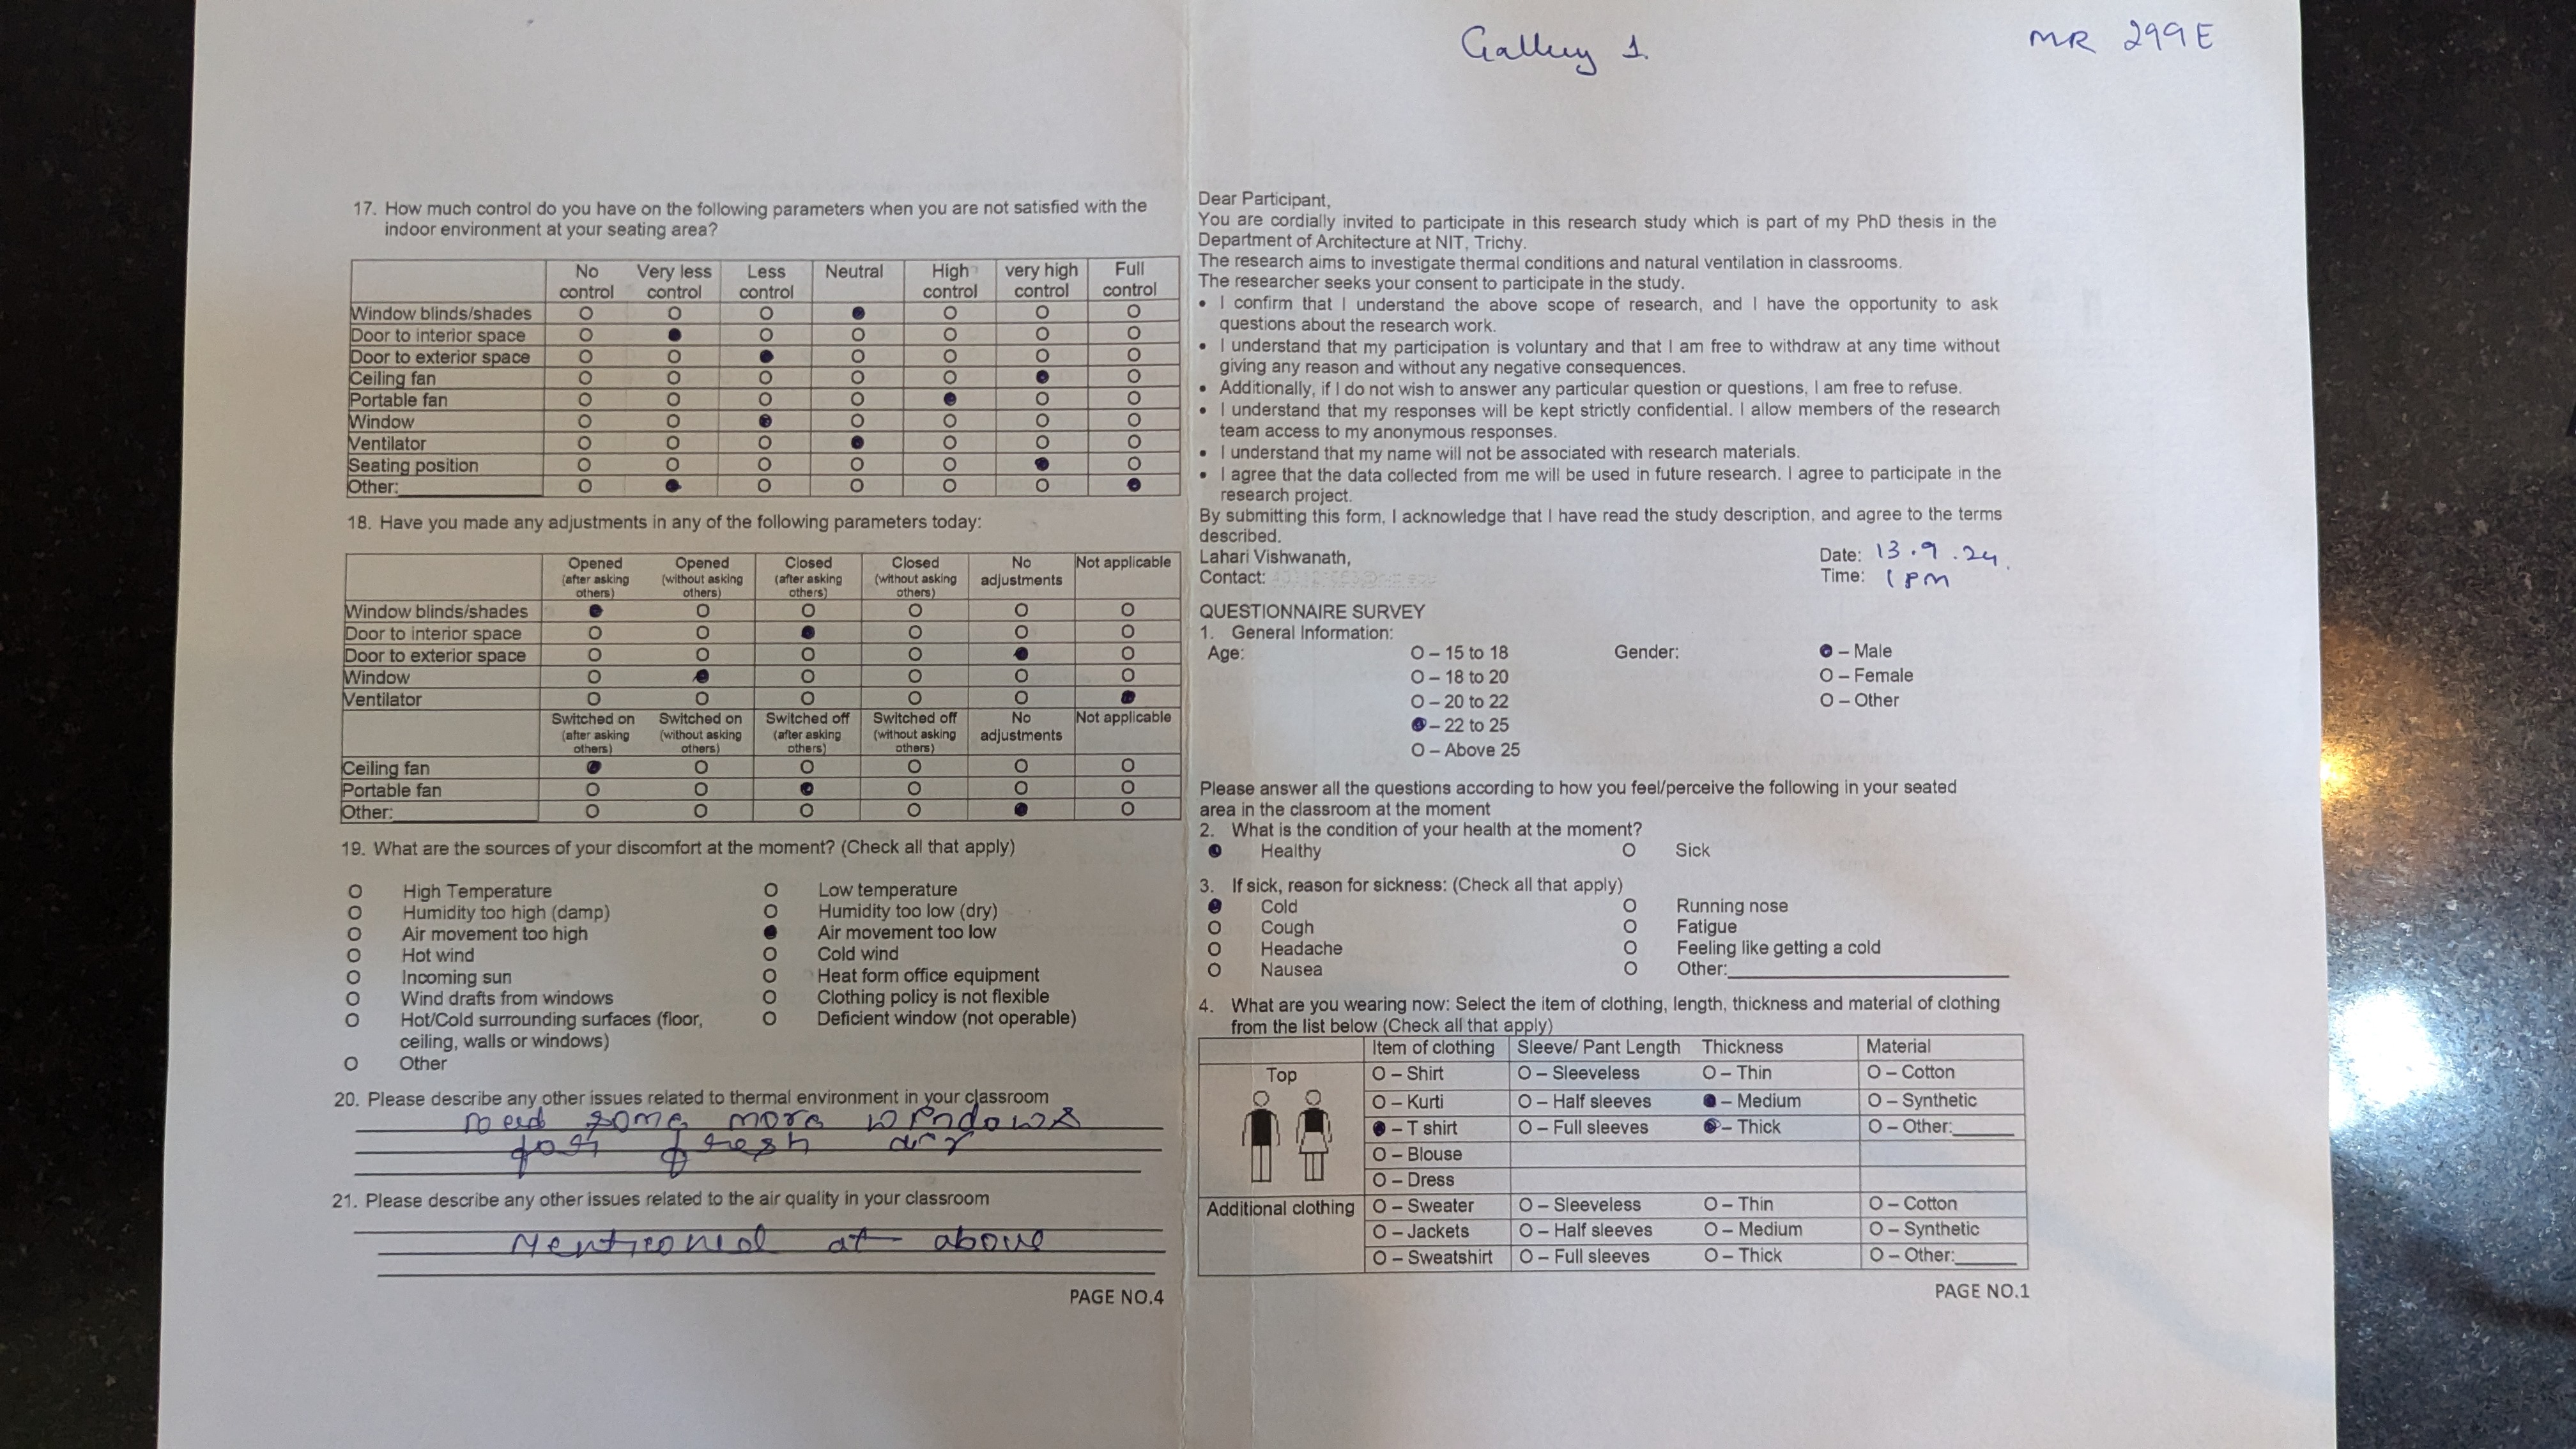 Gallery 1.
MR 299E
17. How much control do you have on the following parameters when you are not satisfied with the
indoor environment at your seating area?
No control Very less control Less control Neutral High control very high control Full control
Window blinds/shades O O O ● O O O
Door to interior space O ● O O O O O
Door to exterior space O O ● O O O O
Ceiling fan O O O O O ● O
Portable fan O O O O ● O O
Window O O ● O O O O
Ventilator O O O ● O O O
Seating position O O O O O ● O
Other:__________ O ● O O O O ●
18. Have you made any adjustments in any of the following parameters today:
Opened (after asking others) Opened (without asking others) Closed (after asking others) Closed (without asking others) No adjustments Not applicable
Window blinds/shades ● O O O O O
Door to interior space O O ● O O O
Door to exterior space O O O O ● O
Window O ● O O O O
Ventilator O O O O O ●
Switched on (after asking others) Switched on (without asking others) Switched off (after asking others) Switched off (without asking others) No adjustments Not applicable
Ceiling fan ● O O O O O
Portable fan O O ● O O O
Other:__________ O O O O ● O
19. What are the sources of your discomfort at the moment? (Check all that apply)
O High Temperature O Low temperature
O Humidity too high (damp) O Humidity too low (dry)
O Air movement too high ● Air movement too low
O Hot wind O Cold wind
O Incoming sun O Heat form office equipment
O Wind drafts from windows O Clothing policy is not flexible
O Hot/Cold surrounding surfaces (floor, O Deficient window (not operable)
ceiling, walls or windows)
O Other
20. Please describe any other issues related to thermal environment in your classroom
need some more windows
for fresh air
21. Please describe any other issues related to the air quality in your classroom
Mentioned at above
PAGE NO.4
Dear Participant,
You are cordially invited to participate in this research study which is part of my PhD thesis in the
Department of Architecture at NIT, Trichy.
The research aims to investigate thermal conditions and natural ventilation in classrooms.
The researcher seeks your consent to participate in the study.
• I confirm that I understand the above scope of research, and I have the opportunity to ask
questions about the research work.
• I understand that my participation is voluntary and that I am free to withdraw at any time without
giving any reason and without any negative consequences.
• Additionally, if I do not wish to answer any particular question or questions, I am free to refuse.
• I understand that my responses will be kept strictly confidential. I allow members of the research
team access to my anonymous responses.
• I understand that my name will not be associated with research materials.
• I agree that the data collected from me will be used in future research. I agree to participate in the
research project.
By submitting this form, I acknowledge that I have read the study description, and agree to the terms
described.
Lahari Vishwanath, Date: 13.9.24.
Contact: Time: 1 PM
QUESTIONNAIRE SURVEY
1. General Information:
Age: O – 15 to 18 Gender: ● – Male
O – 18 to 20 O – Female
O – 20 to 22 O – Other
● – 22 to 25
O – Above 25
Please answer all the questions according to how you feel/perceive the following in your seated
area in the classroom at the moment
2. What is the condition of your health at the moment?
● Healthy O Sick
3. If sick, reason for sickness: (Check all that apply)
● Cold O Running nose
O Cough O Fatigue
O Headache O Feeling like getting a cold
O Nausea O Other:__________
4. What are you wearing now: Select the item of clothing, length, thickness and material of clothing
from the list below (Check all that apply)
Item of clothing Sleeve/ Pant Length Thickness Material
Top O – Shirt O – Sleeveless O – Thin O – Cotton
O – Kurti O – Half sleeves ● – Medium O – Synthetic
● – T shirt O – Full sleeves ● – Thick O – Other:______
O – Blouse
O – Dress
Additional clothing O – Sweater O – Sleeveless O – Thin O – Cotton
O – Jackets O – Half sleeves O – Medium O – Synthetic
O – Sweatshirt O – Full sleeves O – Thick O – Other:______
PAGE NO.1